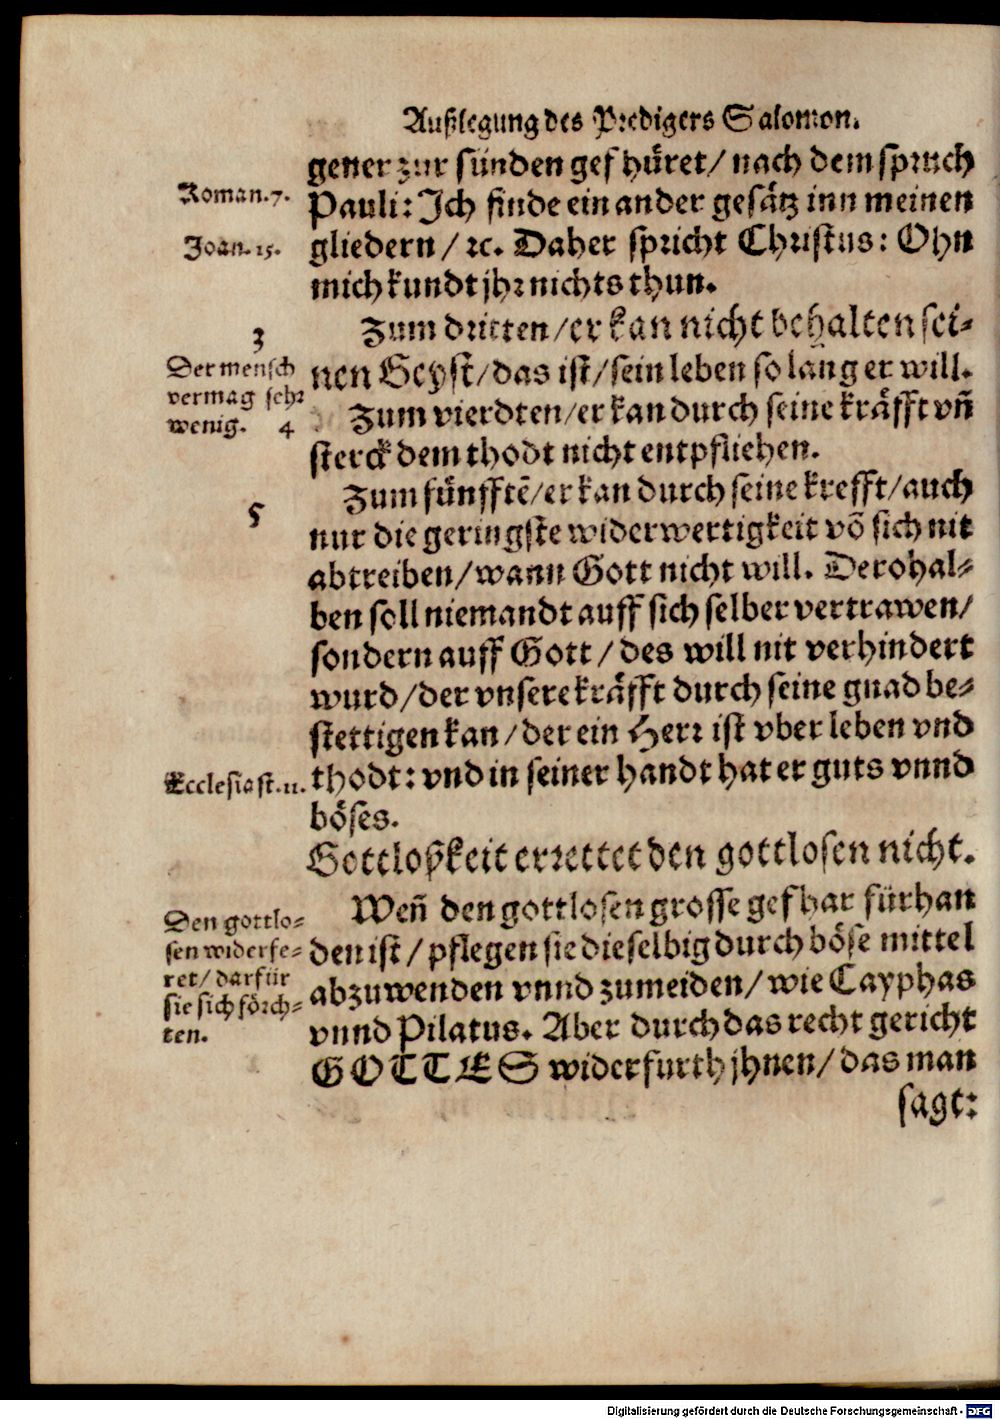 Außlegung des Predigers Salomon.
gener zur sünden gefhüret/ nach dem spruch
Roman.7.
Pauli: Ich finde ein ander gesätz inn meinen
Joan.15.
gliedern/ ꝛc. Daher spricht Christus: Ohn
mich kundt jhr nichts thun.
3
Zum dritten/er kan nicht behalten sei-
Der mensch
vermag sehr
wenig.
nen Geyst/das ist/sein leben so lang er will.
4
Zum vierdten/er kan durch seine kräfft vñ
sterck dem thodt nicht entpfliehen.
5
Zum fünfftẽ/er kan durch seine krefft/auch
nur die geringste widerwertigkeit võ sich nit
abtreiben/wann Gott nicht will. Derohal-
ben soll niemandt auff sich selber vertrawen/
sondern auff Gott/des will nit verhindert
wurd/der vnsere kräfft durch seine gnad be-
stettigen kan/der ein Herr ist vber leben vnd
Ecclesiast.11.
thodt: vnd in seiner handt hat er guts vnnd
böses.
Gottloßkeit errettet den gottlosen nicht.
Den gottlo-
sen widerfe-
ret/darfür
sie sich förch-
ten.
Weñ den gottlosen grosse gefhar fürhan
den ist/pflegen sie dieselbig durch böse mittel
abzuwenden vnnd zumeiden/wie Cayphas
vnnd Pilatus. Aber durch das recht gericht
GOTTES widerfurth jhnen/das man
sagt:
Digitalisierung gefördert durch die Deutsche Forschungsgemeinschaft - DFG